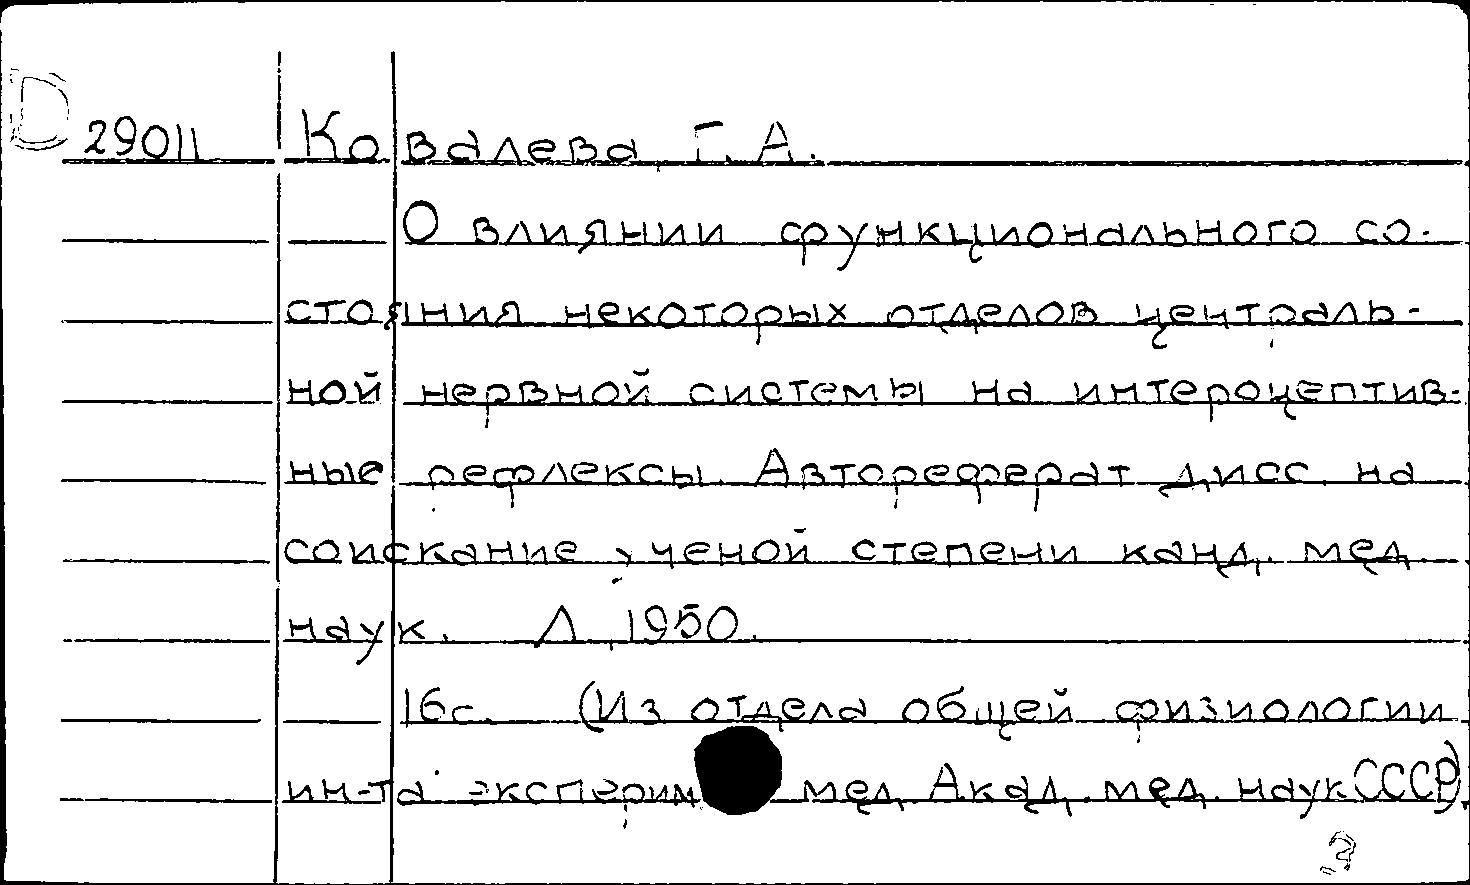 D 29011 Ковалева, Г. А.
О влиянии функционального со-
стояния некоторых отделов централь-
ной нервной системы на интероцептив-
ные рефлексы. Автореферат дисс. на
соискание ученой степени канд. мед.
наук. Л., 1950.
16 с. (Из отдела общей физиологии
ин-та эксперим мед. Акад. мед. наук СССР).